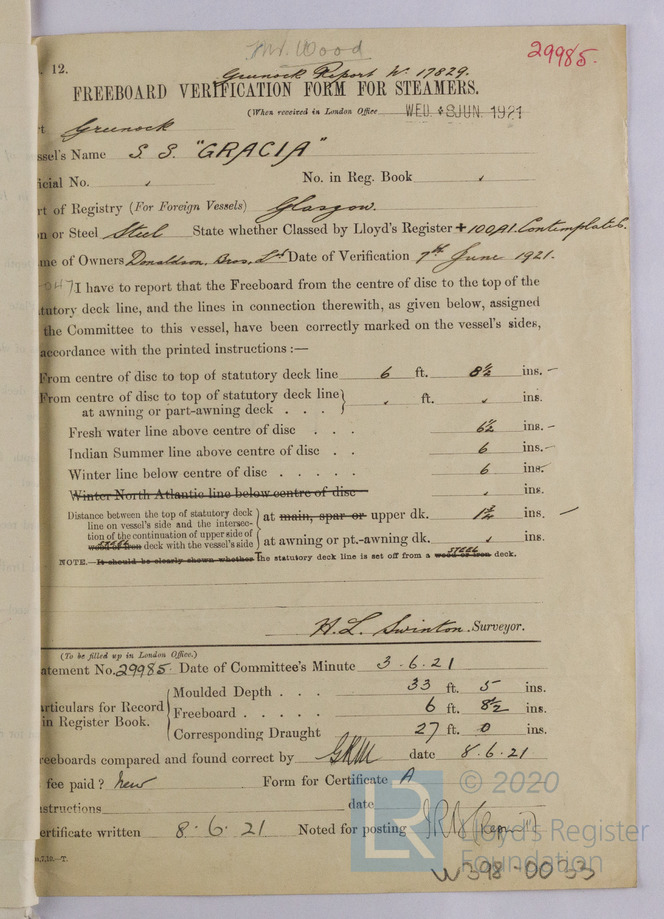 Mr. Wood
29985.
. 12.
Greenock Report No. 17829.
FREEBOARD VERIFICATION FORM FOR STEAMERS.
(When received in London Office WED. 8 JUN. 1921
rt Greenock
ssel's Name S. S. "GRACIA"
icial No. No. in Reg. Book
rt of Registry (For Foreign Vessels) Glasgow.
on or Steel Steel State whether Classed by Lloyd's Register +100A1. Contemplated.
me of Owners Donaldson. Bros. Ltd Date of Verification 7th June 1921.
I have to report that the Freeboard from the centre of disc to the top of the
tutory deck line, and the lines in connection therewith, as given below, assigned
the Committee to this vessel, have been correctly marked on the vessel's sides,
accordance with the printed instructions :—
From centre of disc to top of statutory deck line 6 ft. 8½ ins. –
From centre of disc to top of statutory deck line
at awning or part-awning deck . . . ft. ins.
Fresh water line above centre of disc . . . 6½ ins. –
Indian Summer line above centre of disc . . 6 ins. –
Winter line below centre of disc . . . . . 6 ins.
Winter North Atlantic line below centre of disc ins.
Distance between the top of statutory deck
line on vessel's side and the intersec-
tion of the continuation of upper side of
steel
wood or iron deck with the vessel's side
at main, spar or upper dk. 1½ ins. –
at awning or pt.-awning dk. ins.
steel
NOTE.—It should be clearly shown whether The statutory deck line is set off from a wood or iron deck.
H. L. Swinton. Surveyor.
(To be filled up in London Office.)
atement No. 29985. Date of Committee's Minute 3.6.21
articulars for Record
in Register Book.
Moulded Depth . . . 33 ft. 5 ins.
Freeboard . . . . . 6 ft. 8½ ins.
Corresponding Draught 27 ft. 0 ins.
reeboards compared and found correct by date 8.6.21
fee paid ? New Form for Certificate A
nstructions date
ertificate written 8.6.21 Noted for posting
7,10.—T.
LR
© 2020
Lloyd's Register
Foundation
W398-0033